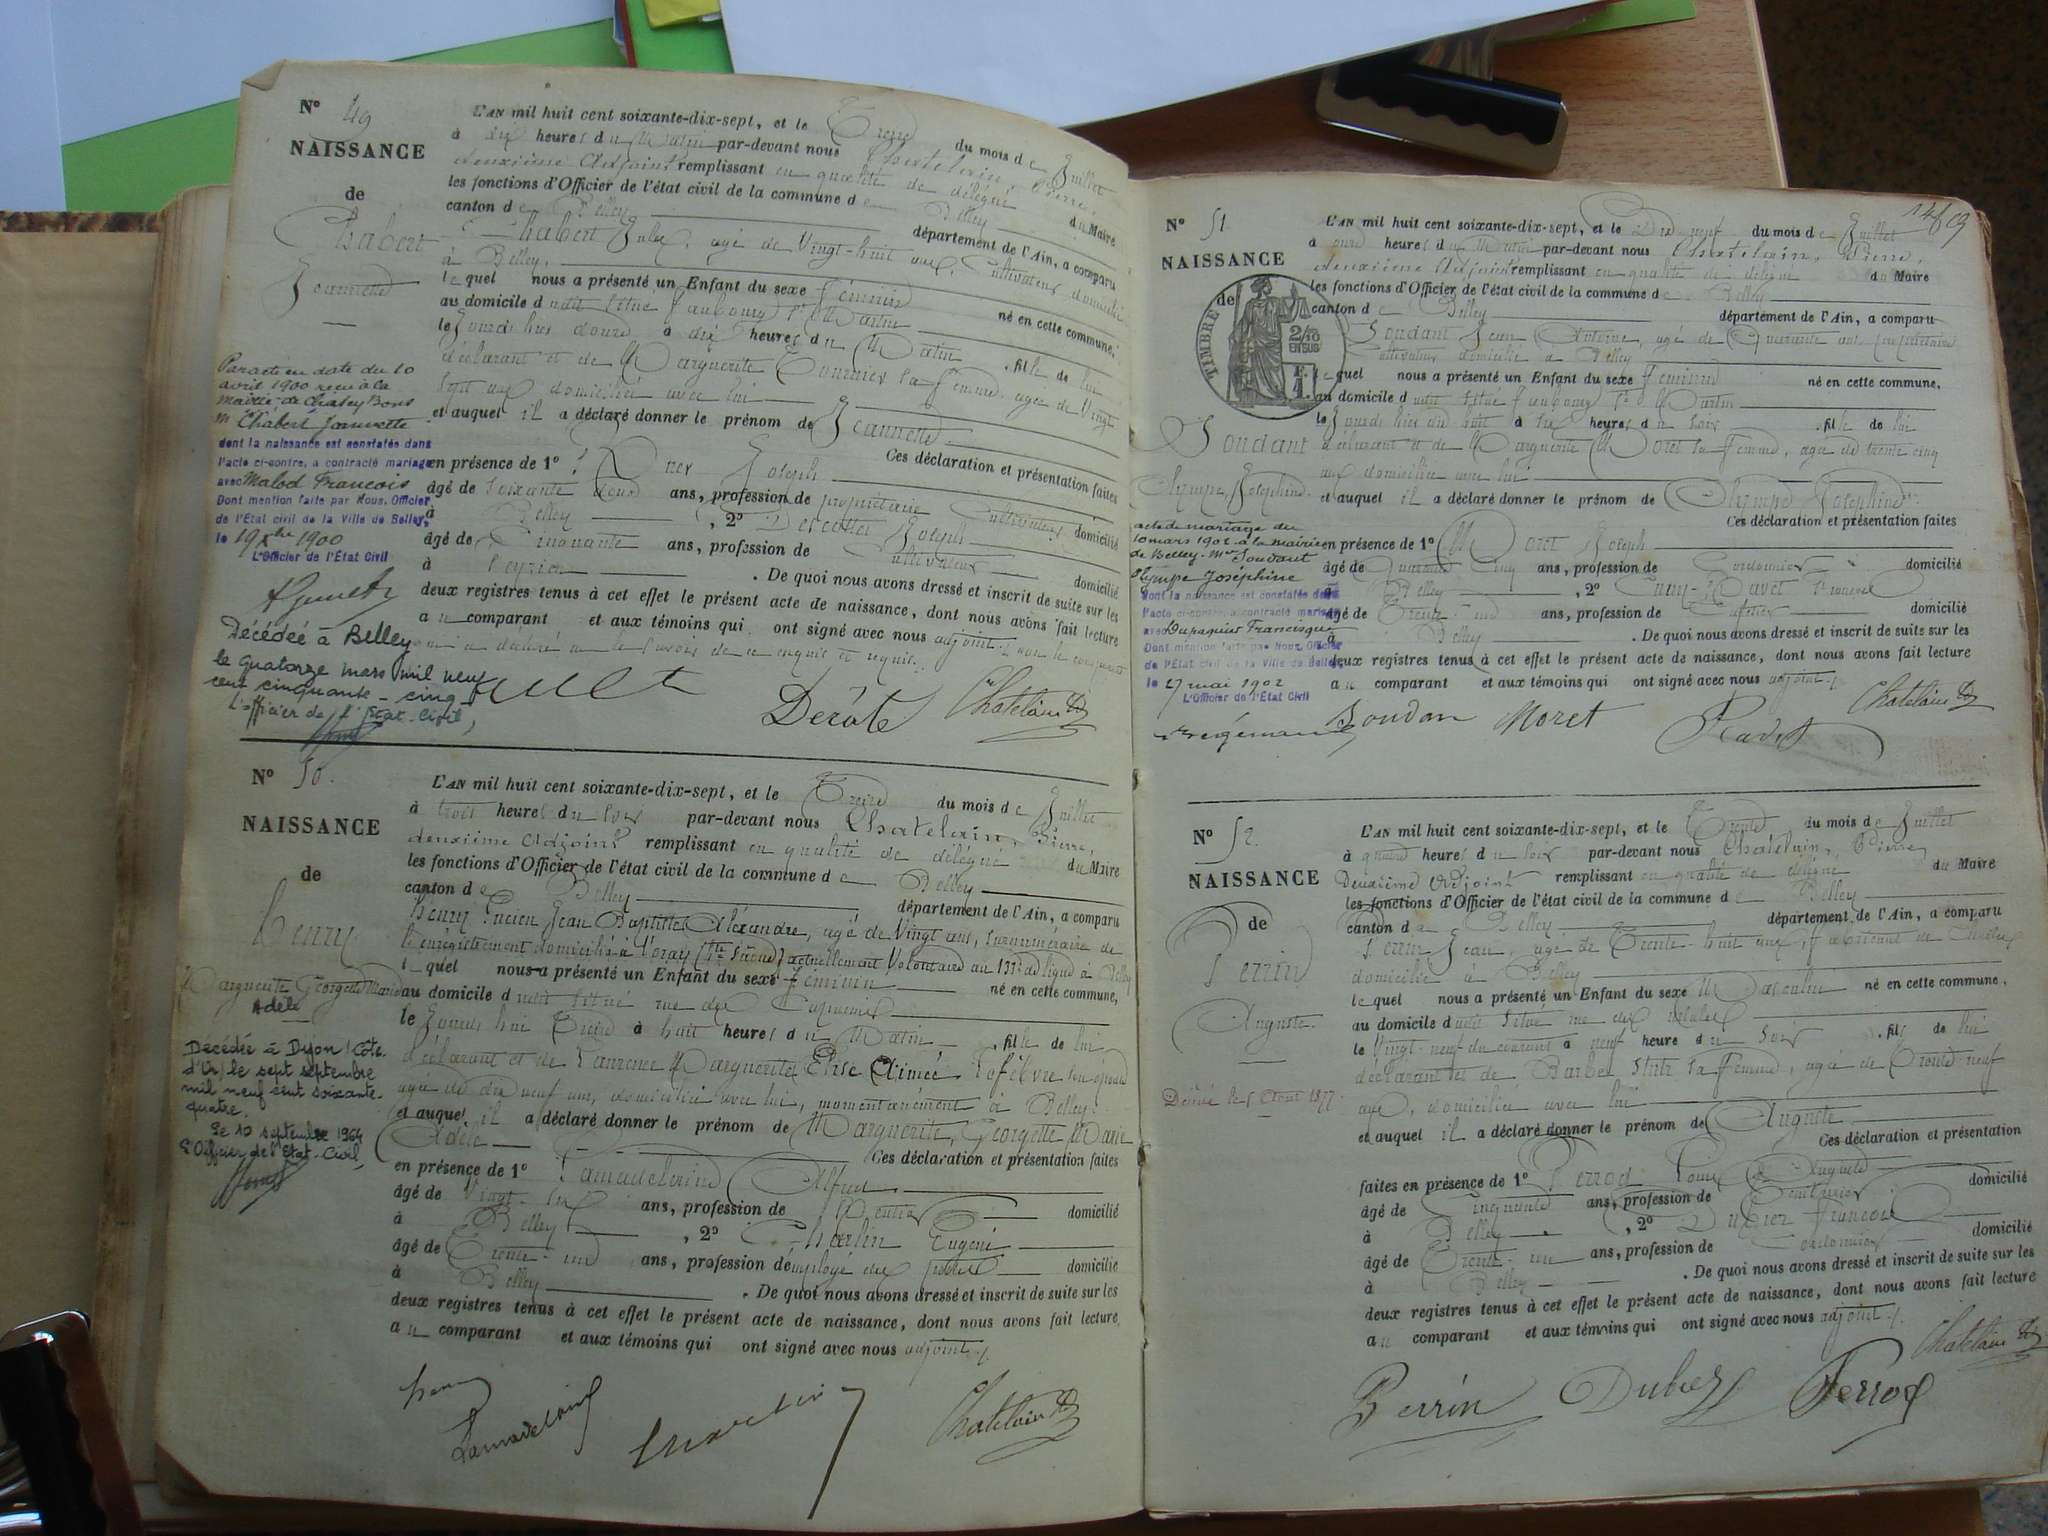 N° 49
NAISSANCE
de
Chabert
Jeannette
Par acte en date du 10
avril 1900 reçu à la
mairie de Chazey Bons
Melle Chabert Jeannette
dont la naissance est constatée dans
l'acte ci-contre, a contracté mariage
avec Malod Francois
Dont mention faite par Nous, Officier
de l'État civil de la Ville de Belley,
le 19 Xbre 1900
L'Officier de l'État Civil
Décédée à Belley
le quatorze mars mil neuf
cent cinquante - cinq
L'officier de l'Etat-Civil,
L'AN mil huit cent soixante-dix-sept, et le Treize du mois de Juillet
à dix heures du Matin par-devant nous Chatelain, Pierre,
deuxième Adjoint remplissant en qualité de délégué du Maire
les fonctions d'Officier de l'état civil de la commune de Belley
canton de Belley département de l'Ain, a comparu
Chabert Jules, agé de Vingt-huit ans, Cultivateur domicilié
à Belley,
lequel nous a présenté un Enfant du sexe féminin né en cette commune,
au domicile du dit situé faubourg St Martin
le Jourd'hier douze à dix heures du Matin, fille de lui
déclarant et de Marguerite Tournier sa femme agée de Vingt
sept ans domiciliée avec lui
et auquel il a déclaré donner le prénom de Jeannette
Ces déclaration et présentation faites
en présence de 1° Joseph
âgé de soixante deux ans, profession de propriétaire Cultivateur domicilié
à Belley, 2° Joseph
âgé de Cinquante ans, profession de Cultivateur domicilié
à Peyrieu. De quoi nous avons dressé et inscrit de suite sur les
deux registres tenus à cet effet le présent acte de naissance, dont nous avons fait lecture
au comparant et aux témoins qui ont signé avec nous adjoint, non le comparant
qui a déclaré ne le savoir de ce enquis et requis.
Chatelain
N° 50.
NAISSANCE
de
henry
Marguerite Georgette Marie
Adèle
Décédée à Dijon (Côte-
d'Or) le sept septembre
mil neuf cent soixante-
quatre.
Le 10 septembre 1964
L'Officier de l'Etat-Civil,
L'AN mil huit cent soixante-dix-sept, et le Treize du mois de Juillet
à trois heures du soir par-devant nous Chatelain, Pierre,
deuxième Adjoint remplissant en qualité de délégué du Maire
les fonctions d'Officier de l'état civil de la commune de Belley
canton de Belley département de l'Ain, a comparu
henry Lucien Jean Baptiste Alexandre, agé de Vingt ans, surnuméraire de
l'enregistrement domicilié à Voray (Hte Saône) actuellement Volontaire au 133e de ligne à Belley
lequel nous a présenté un Enfant du sexe féminin né en cette commune,
au domicile du dit situé rue des Capucins
le Jourd'hui Treize à huit heures du Matin, fille de lui
déclarant et de Laurence Marguerite Elise Aimée Lefèbvre son épouse
agée de dix neuf ans, domiciliée avec lui, momentanément à Belley.
et auquel il a déclaré donner le prénom de Marguerite, Georgette Marie
Adèle
Ces déclaration et présentation faites
en présence de 1° Lamadeleine Alfred
âgé de Vingt-six ans, profession de Rentier domicilié
à Belley, 2° Charlin Eugène
âgé de Trente-un ans, profession d'employé des postes domicilié
à Belley. De quoi nous avons dressé et inscrit de suite sur les
deux registres tenus à cet effet le présent acte de naissance, dont nous avons fait lecture
au comparant et aux témoins qui ont signé avec nous adjoint ./.
henry
Chatelain
N° 51
NAISSANCE
de
TIMBRE
2/10
EN SUS
F.
1.
Soudant
Olympe Joséphine
acte de mariage du
10 mars 1902 à la mairie
de Belley. Melle Soudant
Olympe Joséphine
dont la naissance est constatée dans
l'acte ci-contre, a contracté mariage
avec Dupasquier Francisque
Dont mention faite par Nous, Officier
de l'État civil de la Ville de Belley,
le 27 mai 1902
L'Officier de l'État Civil
L'AN mil huit cent soixante-dix-sept, et le Dix neuf du mois de Juillet
à onze heures du Matin par-devant nous Chatelain, Pierre,
deuxième Adjoint remplissant en qualité de délégué du Maire
les fonctions d'Officier de l'état civil de la commune de Belley
canton de Belley département de l'Ain, a comparu
Soudant Jean Antoine, agé de Quarante ans propriétaire
Cultivateur domicilié à Belley
lequel nous a présenté un Enfant du sexe féminin né en cette commune,
au domicile du dit situé faubourg St Martin
le Jourd'hier dix huit à six heures du soir, fille de lui
déclarant et de Marguerite Moret sa femme, agée de trente cinq
ans domiciliée avec lui
et auquel il a déclaré donner le prénom de Olympe Joséphine
Ces déclaration et présentation faites
en présence de 1° Moret Joseph
âgé de Quarante Cinq ans, profession de Cordonnier domicilié
à Belley, 2°
âgé de Trente-un ans, profession de domicilié
à Belley. De quoi nous avons dressé et inscrit de suite sur les
deux registres tenus à cet effet le présent acte de naissance, dont nous avons fait lecture
au comparant et aux témoins qui ont signé avec nous adjoint ./.
Chatelain
Soudan Moret
N° 52.
NAISSANCE
de
Perrin
Auguste.
Décédé le 5 Aout 1877.
L'AN mil huit cent soixante-dix-sept, et le Trente du mois de Juillet
à quatre heures du soir par-devant nous Chatelain, Pierre,
Deuxième Adjoint remplissant en qualité de délégué du Maire
les fonctions d'Officier de l'état civil de la commune de Belley
canton de Belley département de l'Ain, a comparu
Perrin Jean, agé de Trente-huit ans, fabricant de
domicilié à Belley
lequel nous a présenté un Enfant du sexe Masculin né en cette commune,
au domicile du dit situé rue des
le Vingt-neuf du courant à neuf heures du soir, fils de lui
déclarant et de Barbe Stutz sa femme, agée de Trente neuf
ans, domiciliée avec lui
et auquel il a déclaré donner le prénom de Auguste
Ces déclaration et présentation
faites en présence de 1° Perrod Louis Auguste
âgé de Cinquante ans, profession de domicilié
à Belley, 2° Dubiez François
âgé de Trente-un ans, profession de Cordonnier domicilié
à Belley. De quoi nous avons dressé et inscrit de suite sur les
deux registres tenus à cet effet le présent acte de naissance, dont nous avons fait lecture
au comparant et aux témoins qui ont signé avec nous adjoint ./.
Chatelain
Perrin Dubiez Perrod